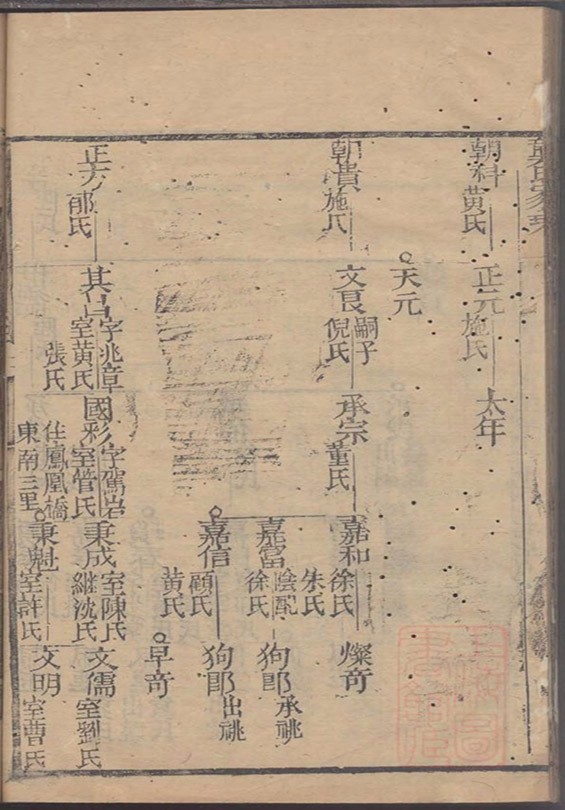 朝科黃氏
正元施氏
太年
天元
朝貴施氏
文良嗣子倪氏
承宗董氏
嘉和徐氏朱氏
燦奇
嘉富陰配徐氏
狗郎承祧
嘉信顧氏黃氏
狗郎出祧
早奇
正方郁氏
其昌字兆章室黃氏張氏
國彩字駕岩室管氏住鳳凰橋東南三里
秉成室陳氏継沈氏
文儒室劉氏
秉魁室許氏
文明室曹氏